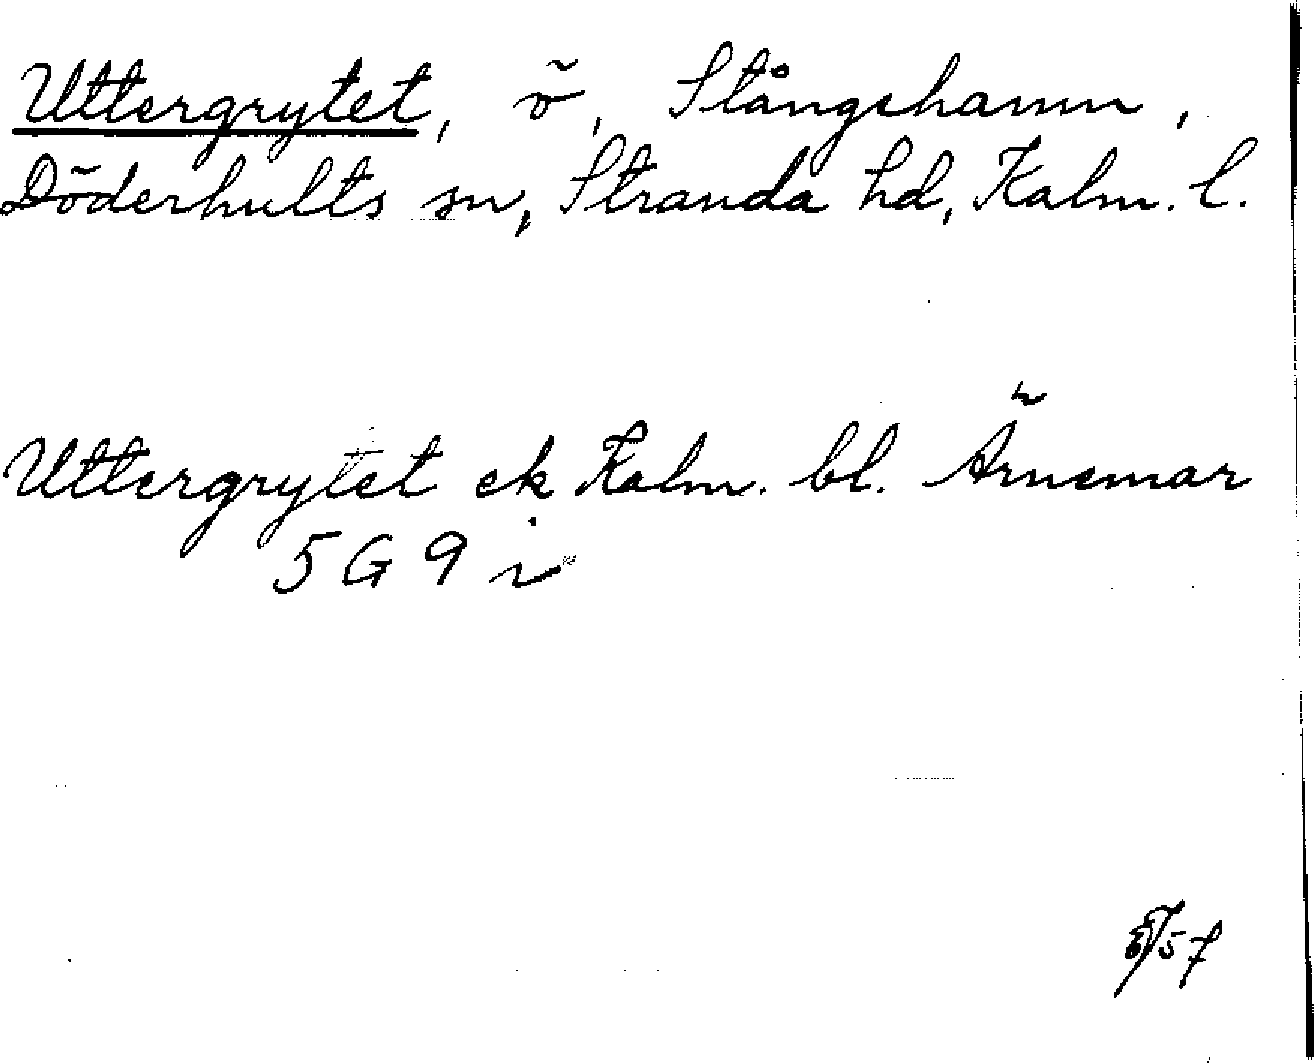 Uttergrytet, ö, Stångehamn,
Döderhults sn, Stranda hd, Kalm. l.
Uttergrytet ek Kalm. bl. Ärnemar
5 G 9 i